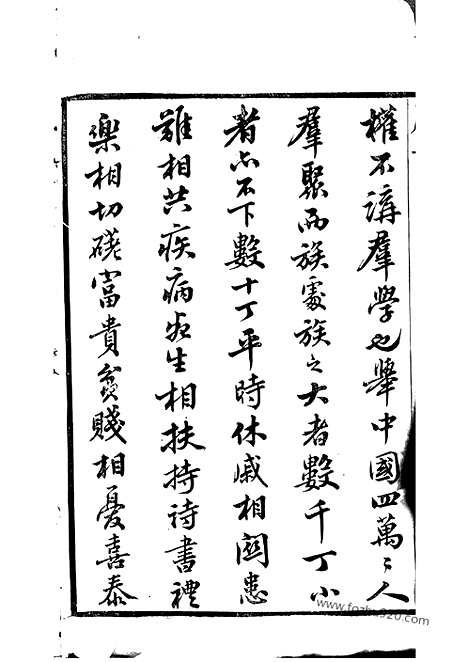 權不講羣學也舉中國四萬〻人
羣聚而族處族之大者數千丁小
者亦不下數十丁平時休戚相關患
難相共疾病死生相扶持詩書禮
樂相切磋富貴貧賤相憂喜泰
www.fozhu920.com